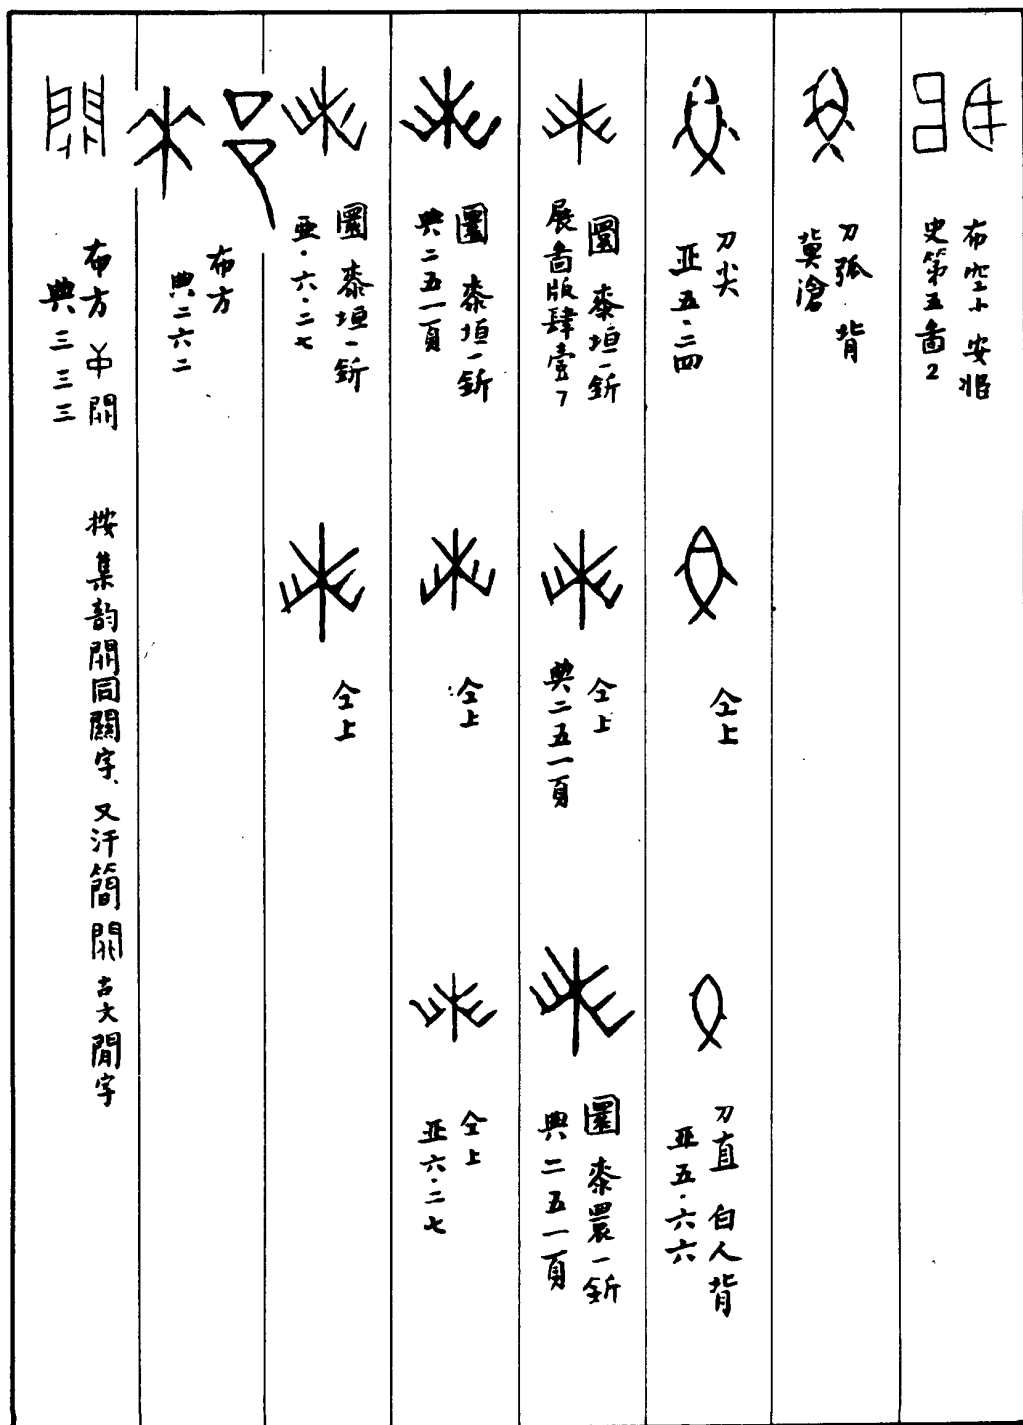 布空小 安臧
史第五啚2
刀弧 背
冀滄
刀尖
亚五·二四
仝上
刀直 白人背
亚五·六六
圜 桼垣一釿
展啚版肆壹7
仝上
典二五一頁
圜 桼睘一釿
典二五一頁
圜 桼垣一釿
典二五一頁
仝上
仝上
亚六·二七
圜 桼垣一釿
亚·六·二七
仝上
布方
典二六二
布方 閞
典三三三
按集韵閞同關字、又汗簡閞古文閒字